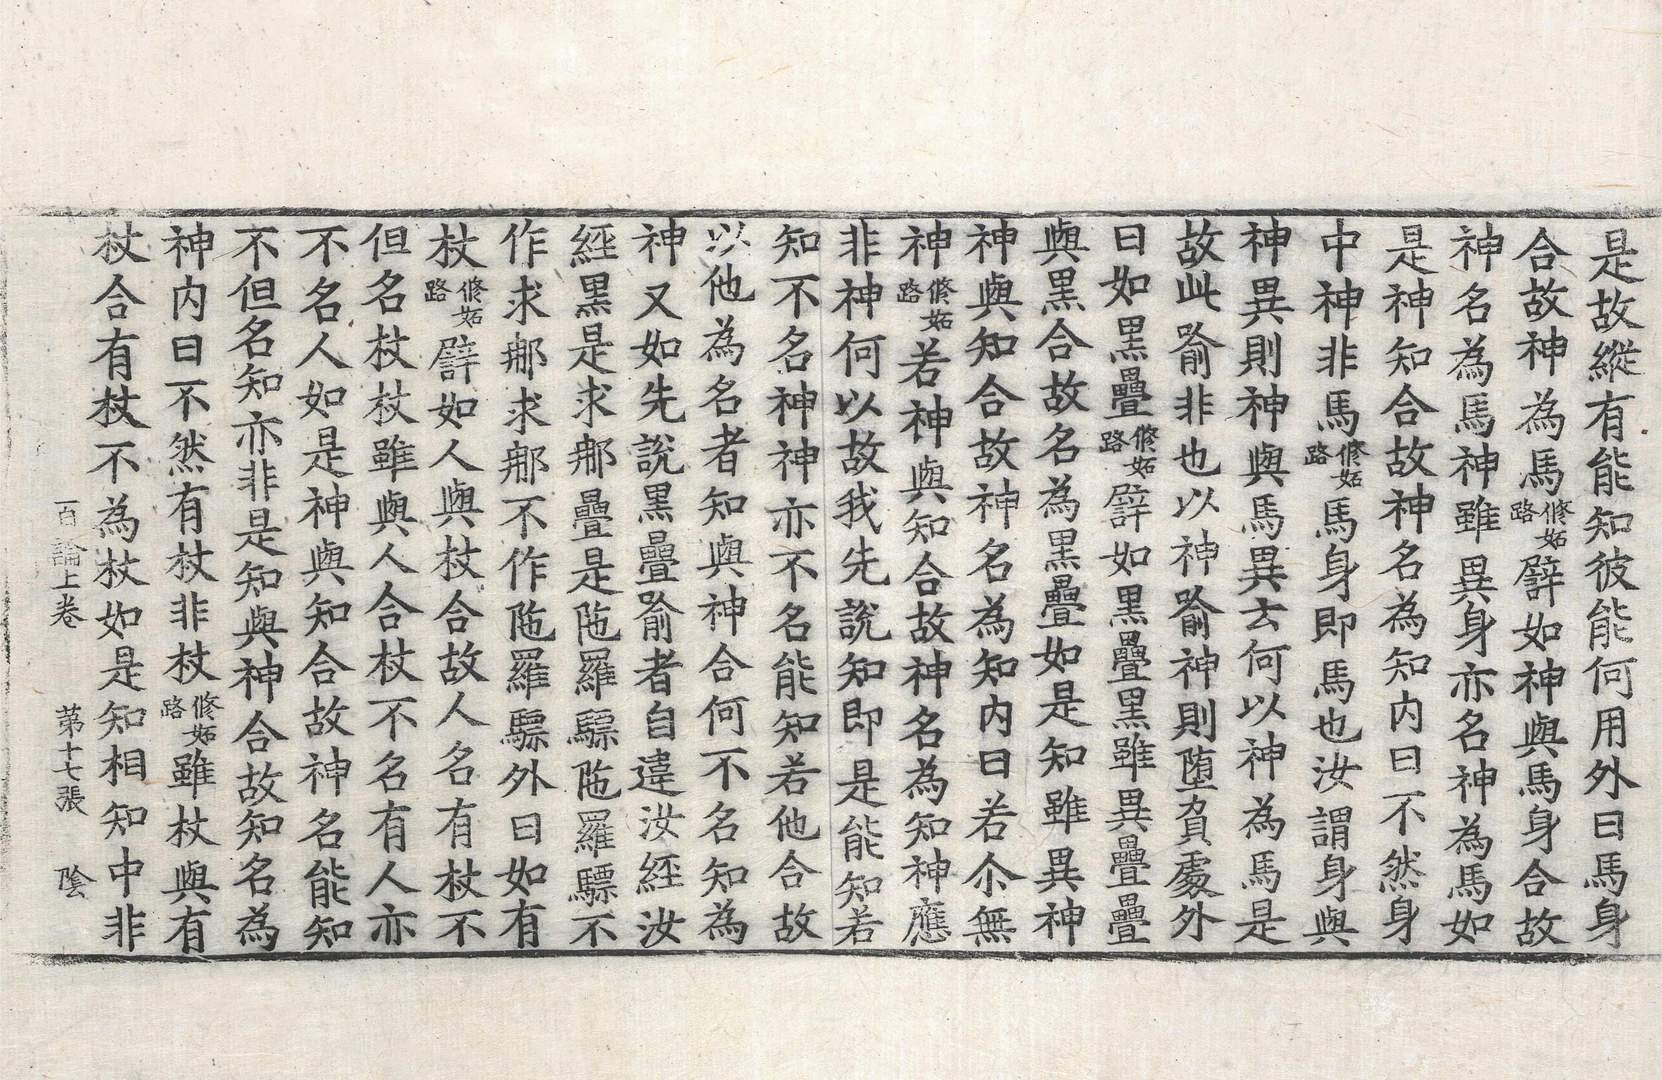 是故縱有能知彼能何用外曰馬身
合故神為馬修妬路譬如神與馬身合故
神名為馬神雖異身亦名神為馬如
是神知合故神名為知內曰不然身
中神非馬修妬路馬身即馬也汝謂身與
神異則神與馬異去何以神為馬是
故此喻非也以神喻神則墮負處外
曰如黑疊修妬路譬如黑疊黑雖異疊疊
與黑合故名為黑疊如是知雖異神
神與知合故神名為知內曰若尒無
神修妬路若神與知合故神名為知神應
非神何以故我先說知即是能知若
知不名神神亦不名能知若他合故
以他為名者知與神合何不名知為
神又如先說黑疊喻者自違汝經汝
經黑是求那疊是陁羅驃陁羅驃不
作求那求那不作陁羅驃外曰如有
杖修妬路譬如人與杖合故人名有杖不
但名杖杖雖與人合杖不名有人亦
不名人如是神與知合故神名能知
不但名知亦非是知與神合故知名為
神內曰不然有杖非杖修妬路雖杖與有
杖合有杖不為杖如是知相知中非
百論上卷 第十七張 陰